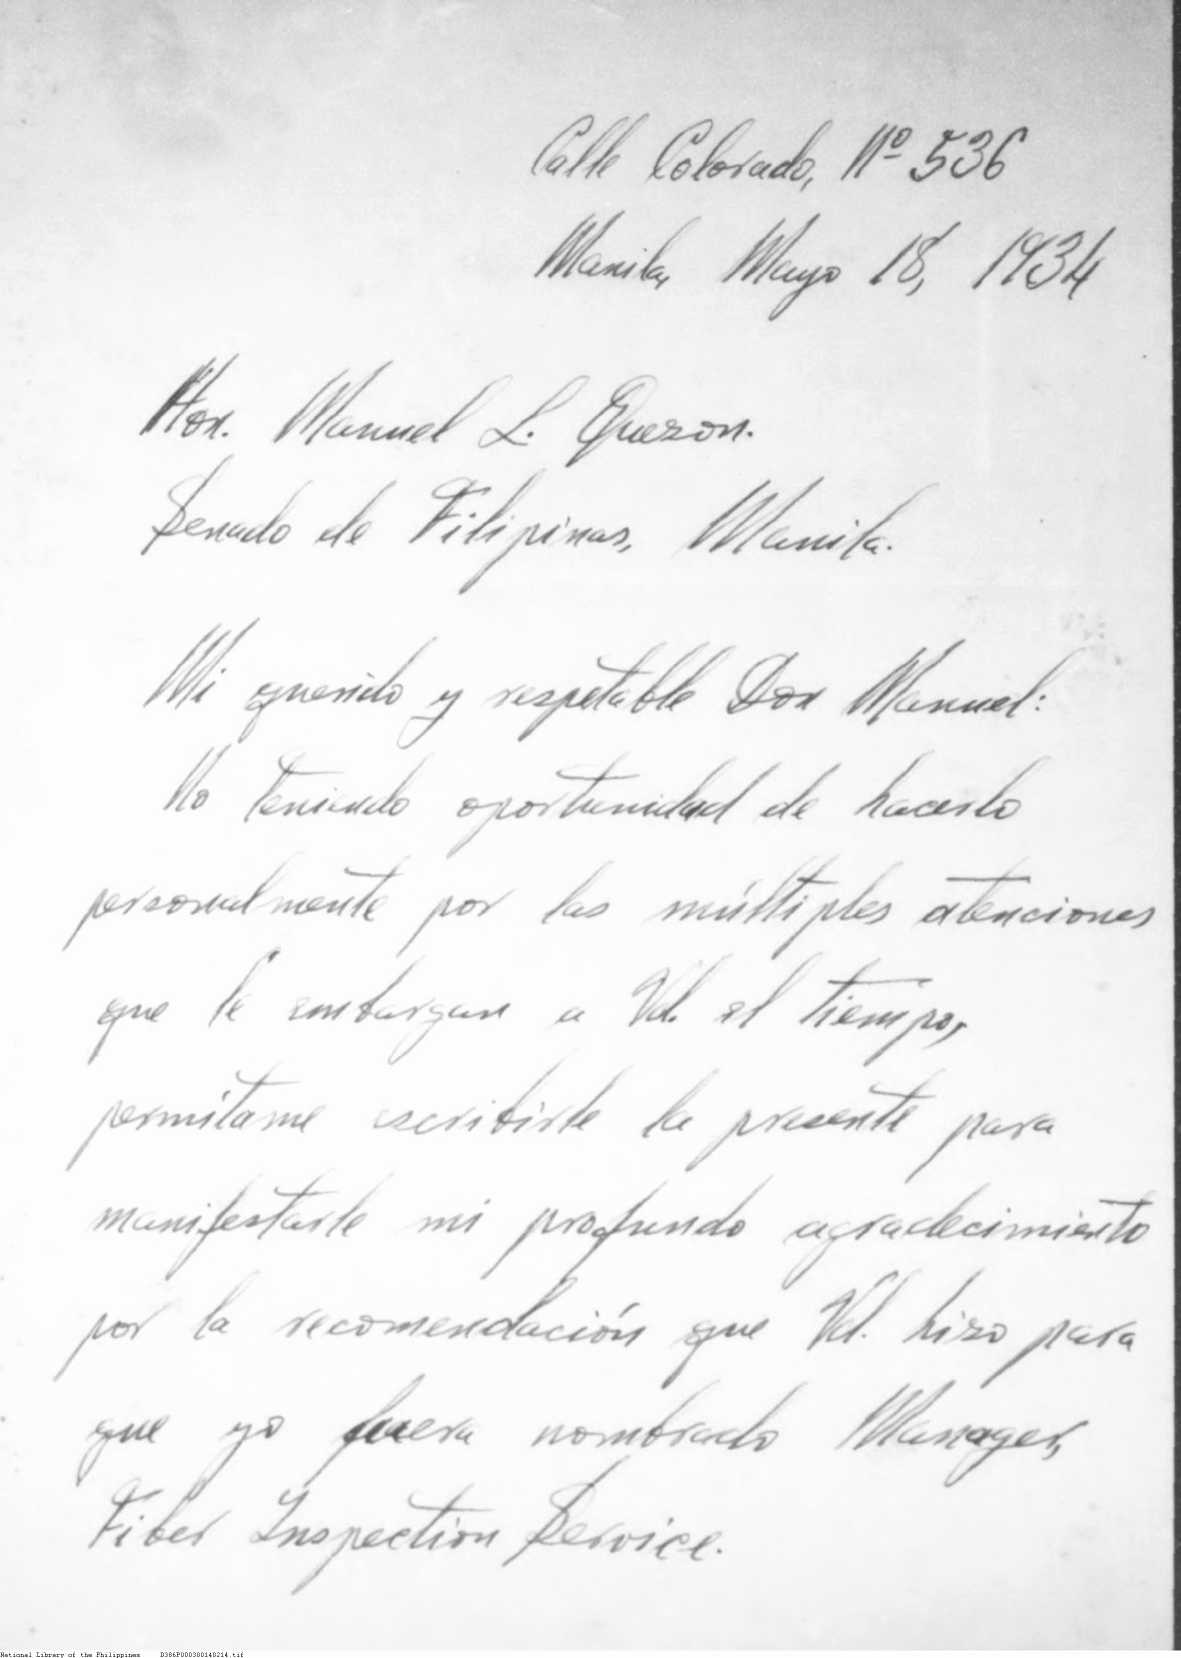 Calle Colorado, Nº 536
Manila, Mayo 18, 1934
Hon. Manuel L. Quezon.
Senado de Filipinas, Manila.
Mi querido y respetable Don Manuel:
No teniendo oportunidad de hacerlo
personalmente por las múltiples atenciones
que le embargan a Vd. el tiempo,
permítame escribirle la presente para
manifestarle mi profundo agradecimiento
por la recomendación que Vd. hizo para
que yo fuera nombrado Manager,
Fiber Inspection Service.
National Library of the Philippines D386P000300140214.tif